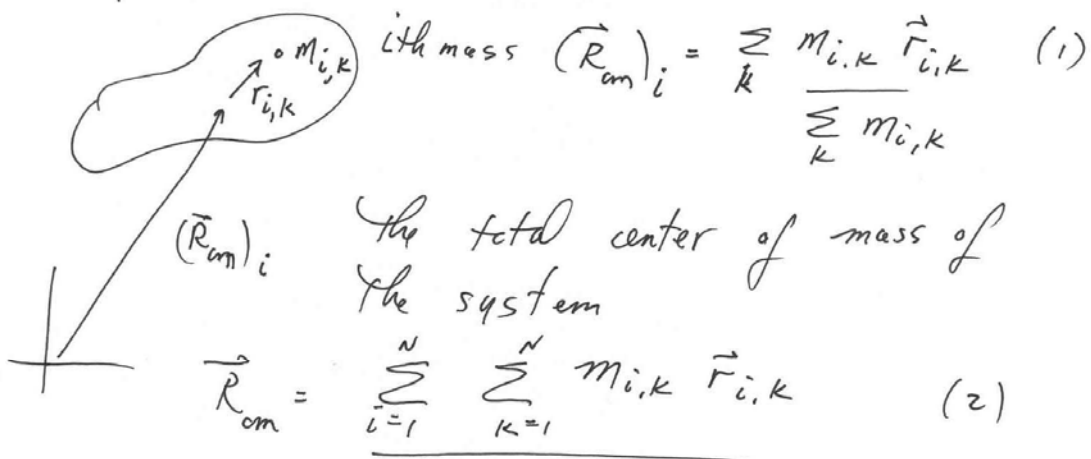 m_{i,k}
r_{i,k}
ith mass (\vec{R}_{cm})_i = \frac{\sum_k m_{i,k} \vec{r}_{i,k}}{\sum_k m_{i,k}} (1)
(\vec{R}_{cm})_i
The total center of mass of
the system
\vec{R}_{cm} = \sum_{i=1}^{N} \sum_{k=1}^{N} m_{i,k} \vec{r}_{i,k} (2)